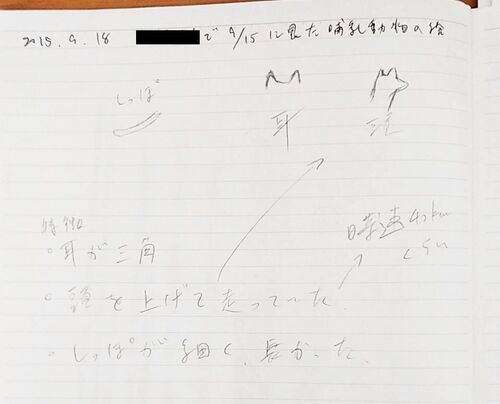 2015.9.18 で 9/15 に見た哺乳動物の絵
しっぽ
耳
頭
特徴
・耳が三角
・頭を上げて走っていた。
時速40km
くらい
・しっぽが細く、長かった。